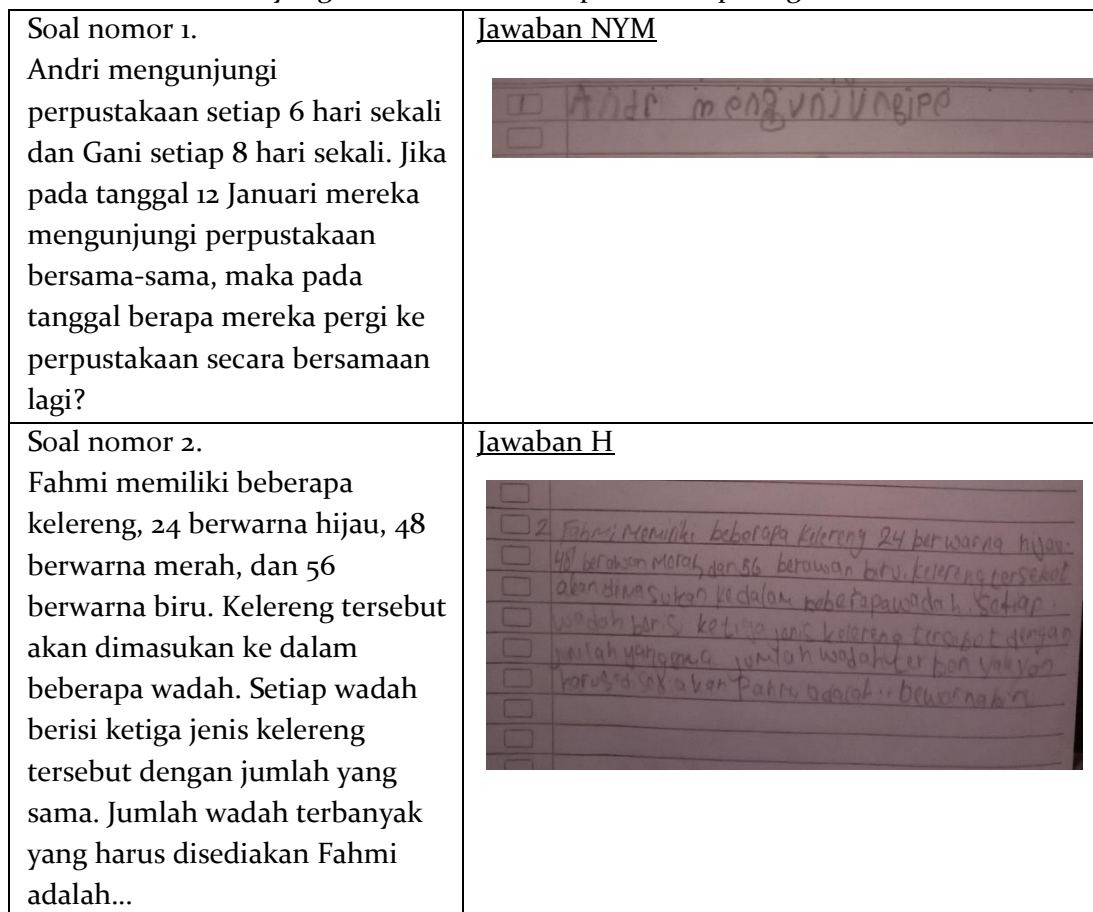 Soal nomor 1.
Andri mengunjungi
perpustakaan setiap 6 hari sekali
dan Gani setiap 8 hari sekali. Jika
pada tanggal 12 Januari mereka
mengunjungi perpustakaan
bersama-sama, maka pada
tanggal berapa mereka pergi ke
perpustakaan secara bersamaan
lagi?
Jawaban NYM
1 Andr mengunjungipe
Soal nomor 2.
Fahmi memiliki beberapa
kelereng, 24 berwarna hijau, 48
berwarna merah, dan 56
berwarna biru. Kelereng tersebut
akan dimasukan ke dalam
beberapa wadah. Setiap wadah
berisi ketiga jenis kelereng
tersebut dengan jumlah yang
sama. Jumlah wadah terbanyak
yang harus disediakan Fahmi
adalah...
Jawaban H
2 Fahmi Memiliki beberapa kelereng 24 berwarna hijau.
48 Merah, dan 56 biru. kelereng
ke dalam beberapa wadah. Setiap
wadah ketiga jenis kelereng tersebut dengan
jumlah wadah
adalah